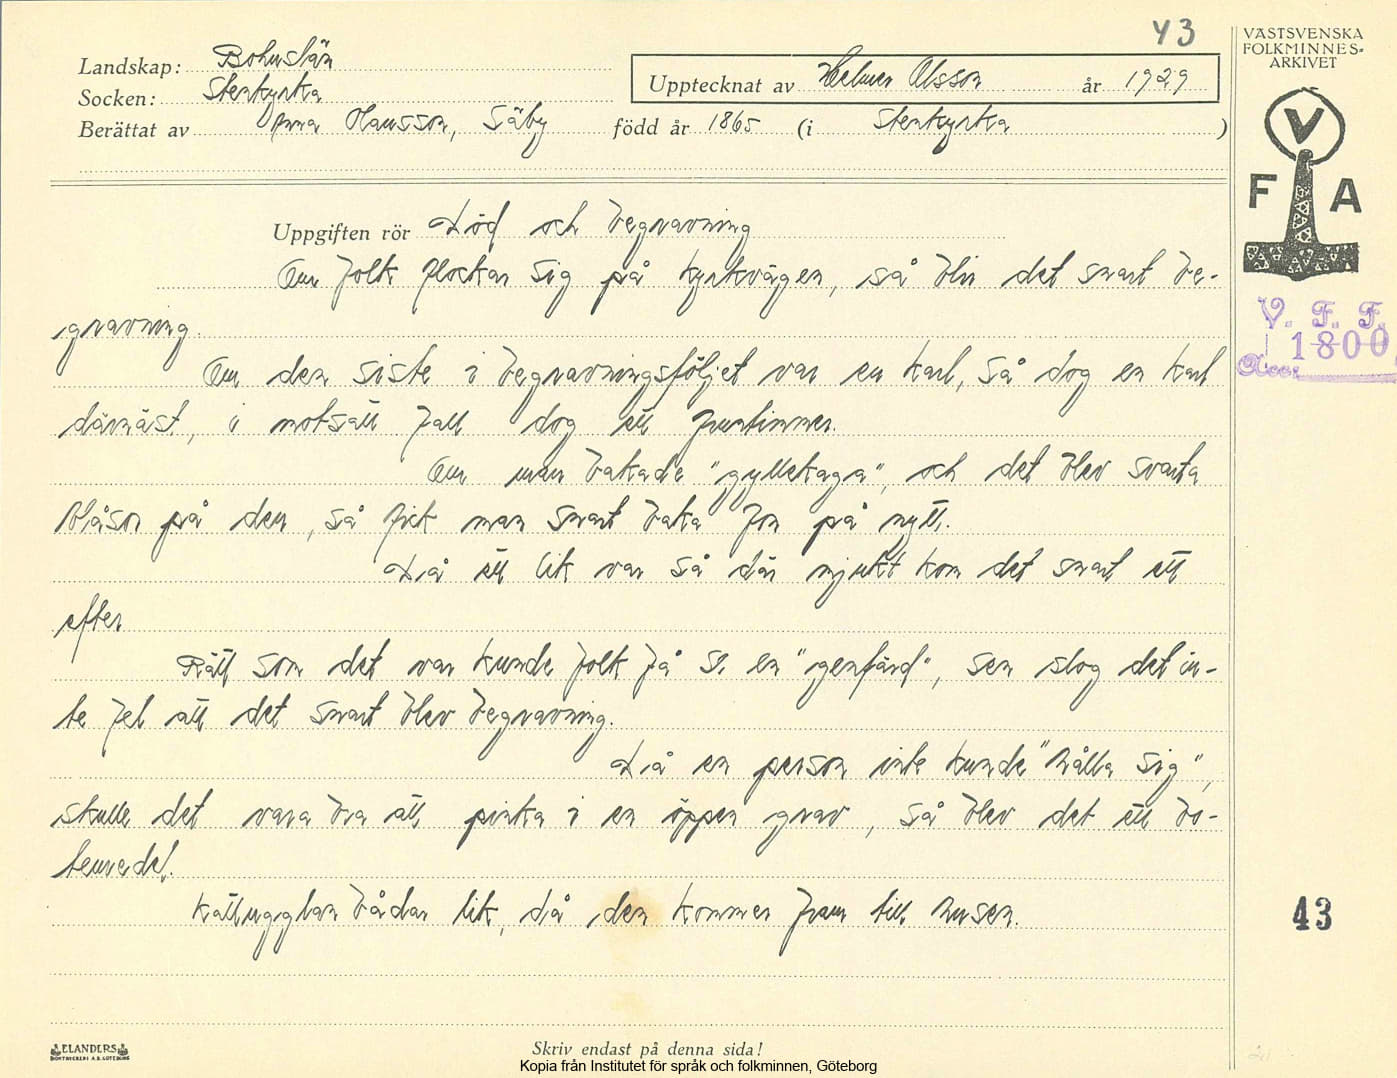 43
VÄSTSVENSKA
FOLKMINNES-
ARKIVET
Landskap: Bohuslän
Socken: Stenkyrka
Upptecknat av Helmer Olsson år 1929
Berättat av Anna Hansson, Säby född år 1865 (i Stenkyrka )
V
F A
Uppgiften rör Död och begravning
Om folk flockar sig på kyrkvägen, så blir det snart be-
gravning.
V. F. F.
1800
Acc.
Om den siste i begravningsföljet var en karl, så dog en karl
därnäst, i motsatt fall dog ett fruntimmer.
Om man bakade "gyllekaga", och det blev svarta
blåsor på den, så fick man snart baka för på nytt.
Då ett lik var så där mjukt kom det snart ett
efter
Rätt som det var kunde folk få se en "genfärd", sen slog det in-
te fel att det snart blev begravning.
Då en person inte kunde "hålla sig",
skulle det vara bra att pinka i en öppen grav, så blev det ett bo-
temedel.
Kattugglan bådar lik, då den kommer fram till husen.
43
ELANDERS
BOKTRYCKERI A.B. GÖTEBORG
Skriv endast på denna sida!
Kopia från Institutet för språk och folkminnen, Göteborg